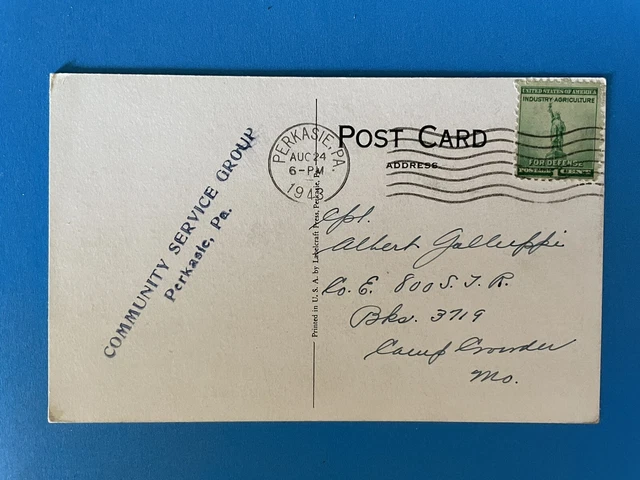 COMMUNITY SERVICE GROUP
Perkasie, Pa.
PERKASIE, PA.
AUG 24
6-PM
1943
Printed in U. S. A. by Labelcraft Press, Perkasie, Pa.
POST CARD
ADDRESS
UNITED STATES OF AMERICA
INDUSTRY AGRICULTURE
FOR DEFENSE
POSTAGE 1 CENT
Cpl.
Albert Galluppi
Co. E. 800 S. T. R.
Bks. 3719
Camp Crowder
Mo.